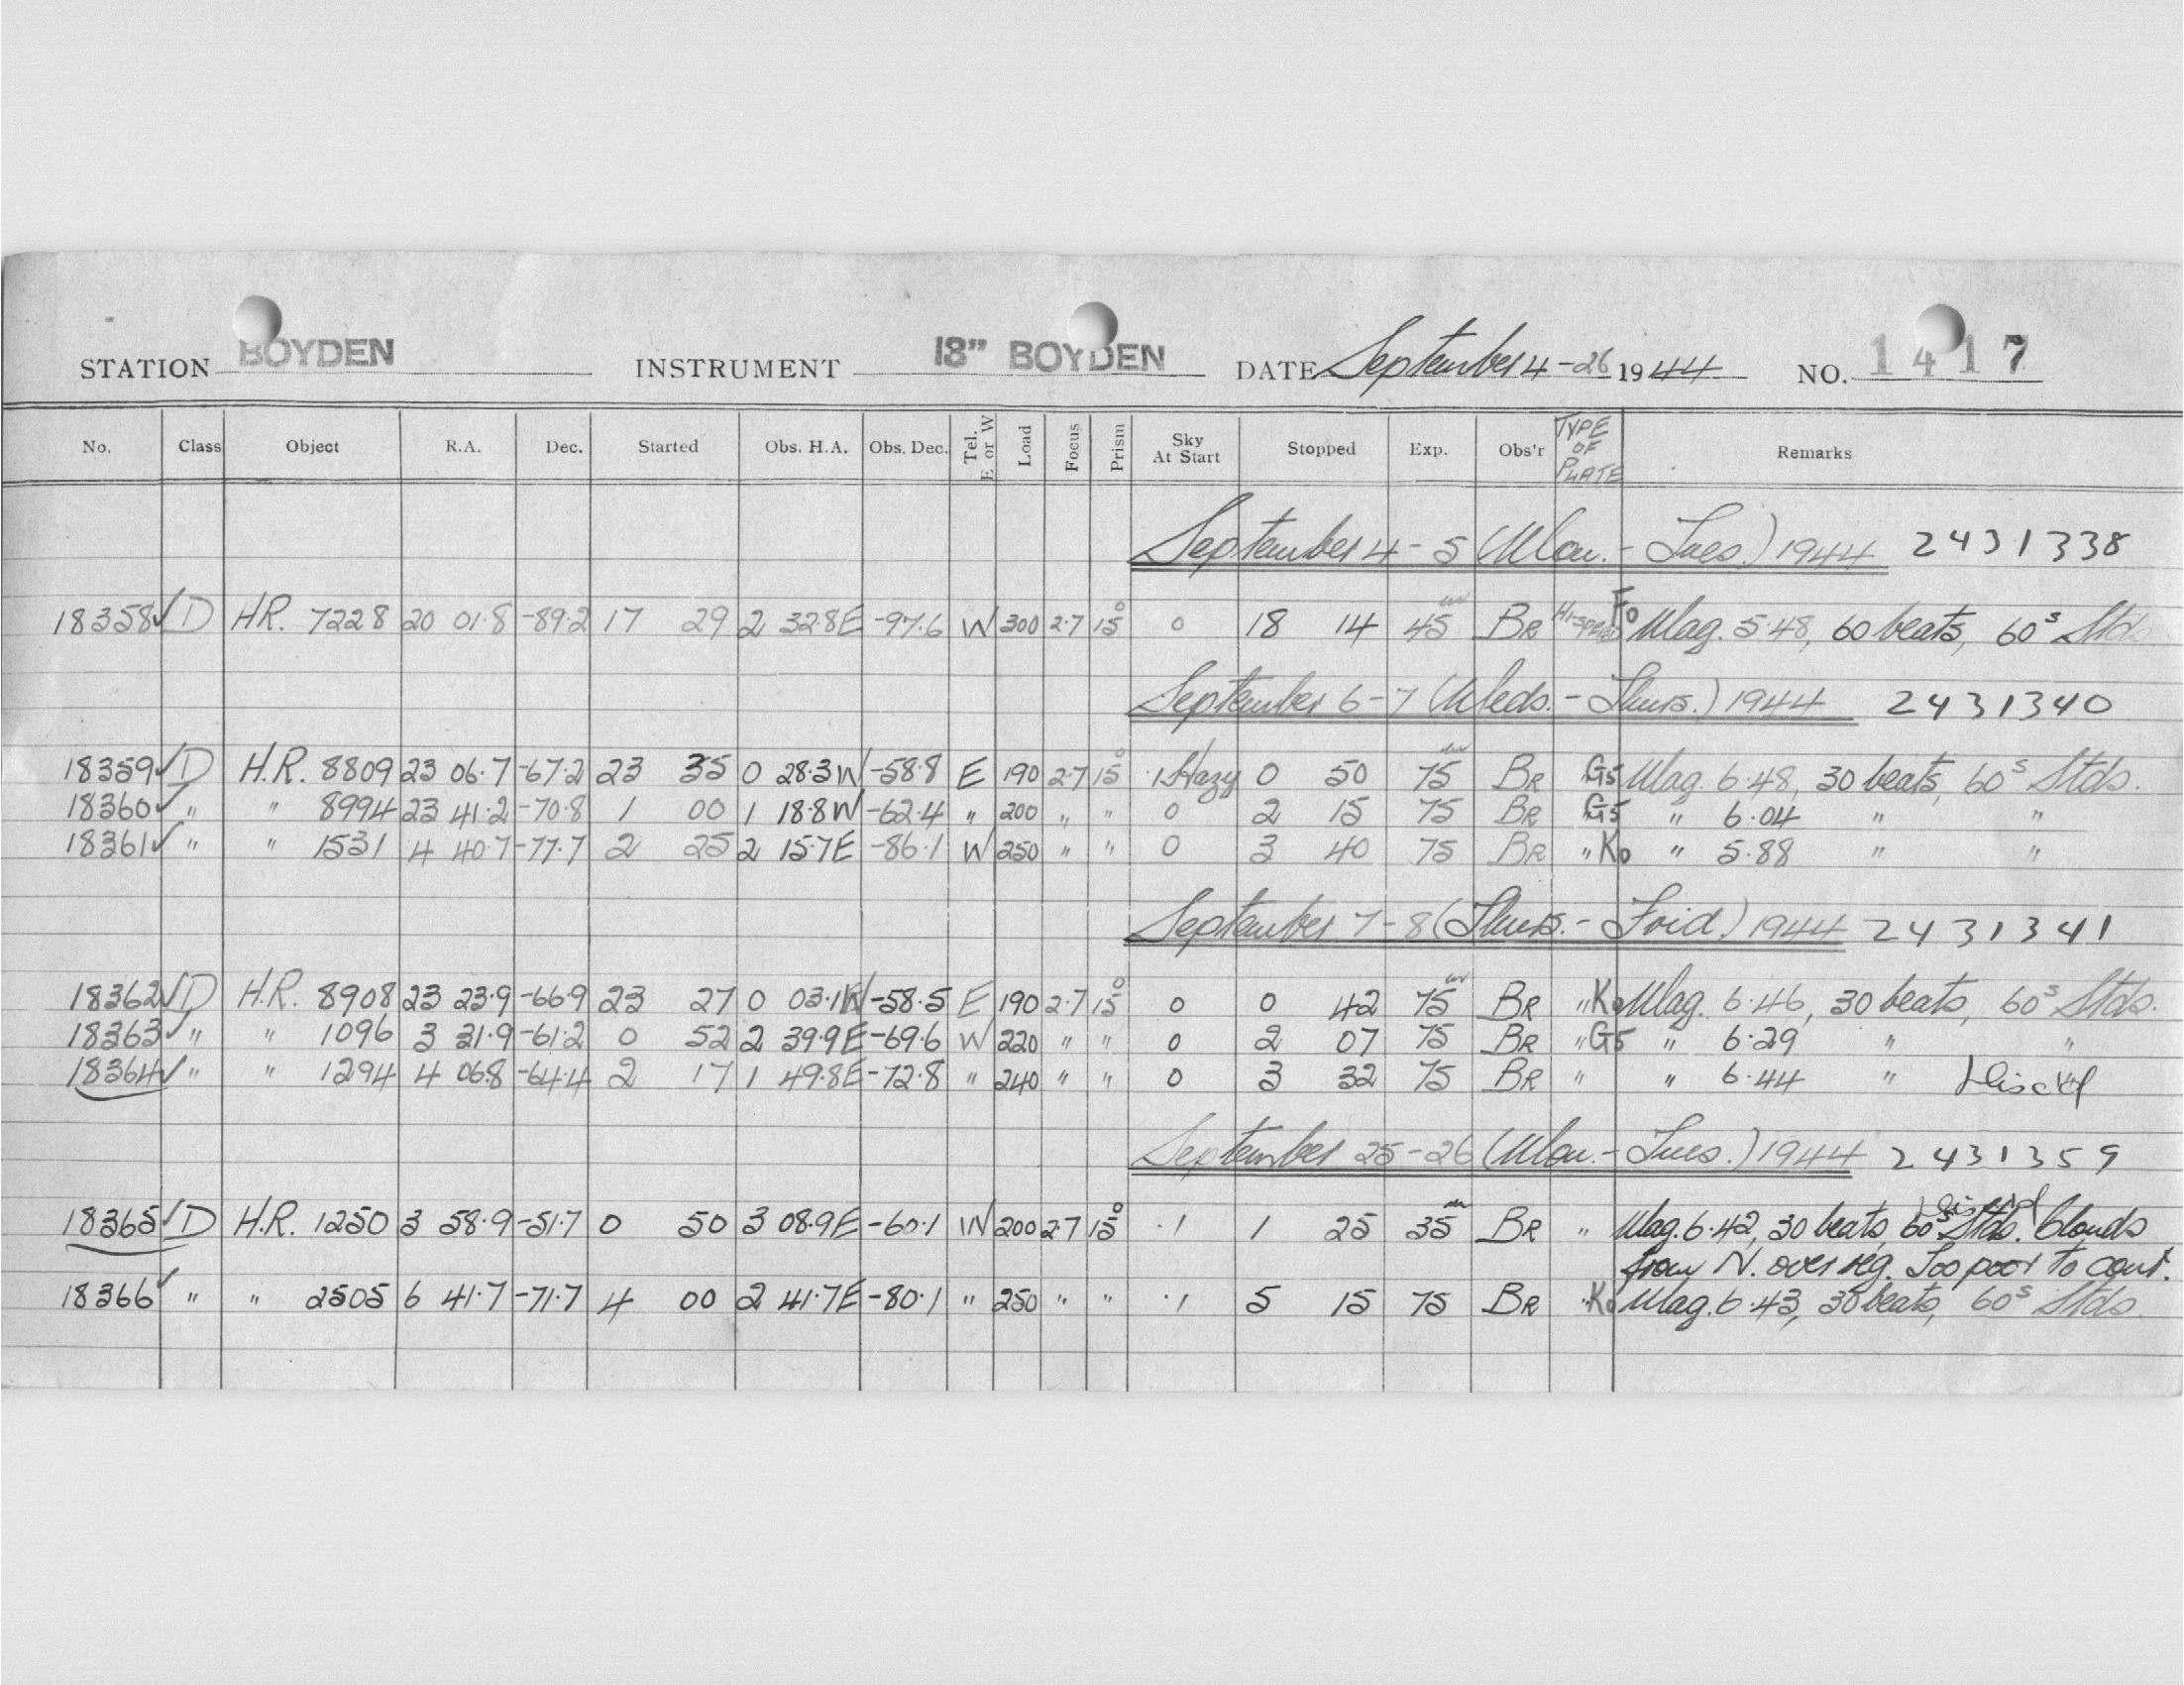 STATION BOYDEN INSTRUMENT 18" BOYDEN DATE September 4-26 1944 NO. 1417
No. Class Object R.A. Dec. Started Obs. H.A. Obs. Dec. Tel. E or W Load Focus Prism Sky At Start Stopped Exp. Obs'r TYPE OF PLATE Remarks
September 4-5 (Mon.-Tues.) 1944 2431338
18358✓ D HR. 7228 20 01.8 -89.2 17 29 2 32.8E -97.6 W 300 2.7 15° 0 18 14 45 BR Hi-speed F0 Mag. 5.48, 60 beats, 60s Stds
September 6-7 (Weds.-Thurs.) 1944 2431340
18359✓ D H.R. 8809 23 06.7 -67.2 23 35 0 28.3W -58.8 E 190 2.7 15° .1 Hazy 0 50 75 BR G5 Mag. 6.48, 30 beats, 60s Stds.
18360✓ " " 8994 23 41.2 -70.8 1 00 1 18.8W -62.4 " 200 " " 0 2 15 75 BR G5 " 6.04 " "
18361✓ " " 1531 4 40.7 -77.7 2 25 2 15.7E -86.1 W 250 " " 0 3 40 75 BR " K0 " 5.88 " "
September 7-8 (Thurs.-Frid.) 1944 2431341
18362✓ D H.R. 8908 23 23.9 -66.9 23 27 0 03.1W -58.5 E 190 2.7 15° 0 0 42 75 BR " K0 Mag. 6.46, 30 beats, 60s Stds.
18363✓ " " 1096 3 31.9 -61.2 0 52 2 39.9E -69.6 W 220 " " 0 2 07 75 BR " G5 " 6.29 " "
18364✓ " " 1294 4 06.8 -64.4 2 17 1 49.8E -72.8 " 240 " " 0 3 32 75 BR " " 6.44 " " Discd
September 25-26 (Mon.-Tues.) 1944 2431359
Discd
18365✓ D H.R. 1250 3 58.9 -51.7 0 50 3 08.9E -60.1 W 200 2.7 15° .1 1 25 35 BR " Mag. 6.42, 30 beats, 60s Stds. Clouds
from N. over reg. Too poor to cont.
18366✓ " " 2505 6 41.7 -71.7 4 00 2 41.7E -80.1 " 250 " " .1 5 15 75 BR " K0 Mag. 6.43, 30 beats, 60s Stds.